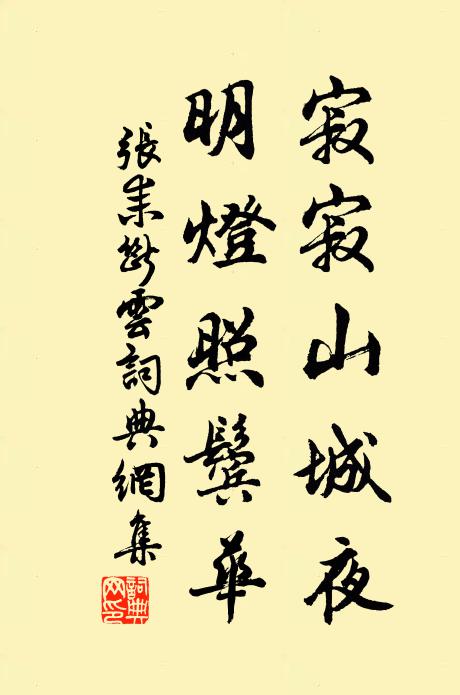 寂寂山城夜
明燈照鬢華
張耒斷雲詞典網集
詞典网印